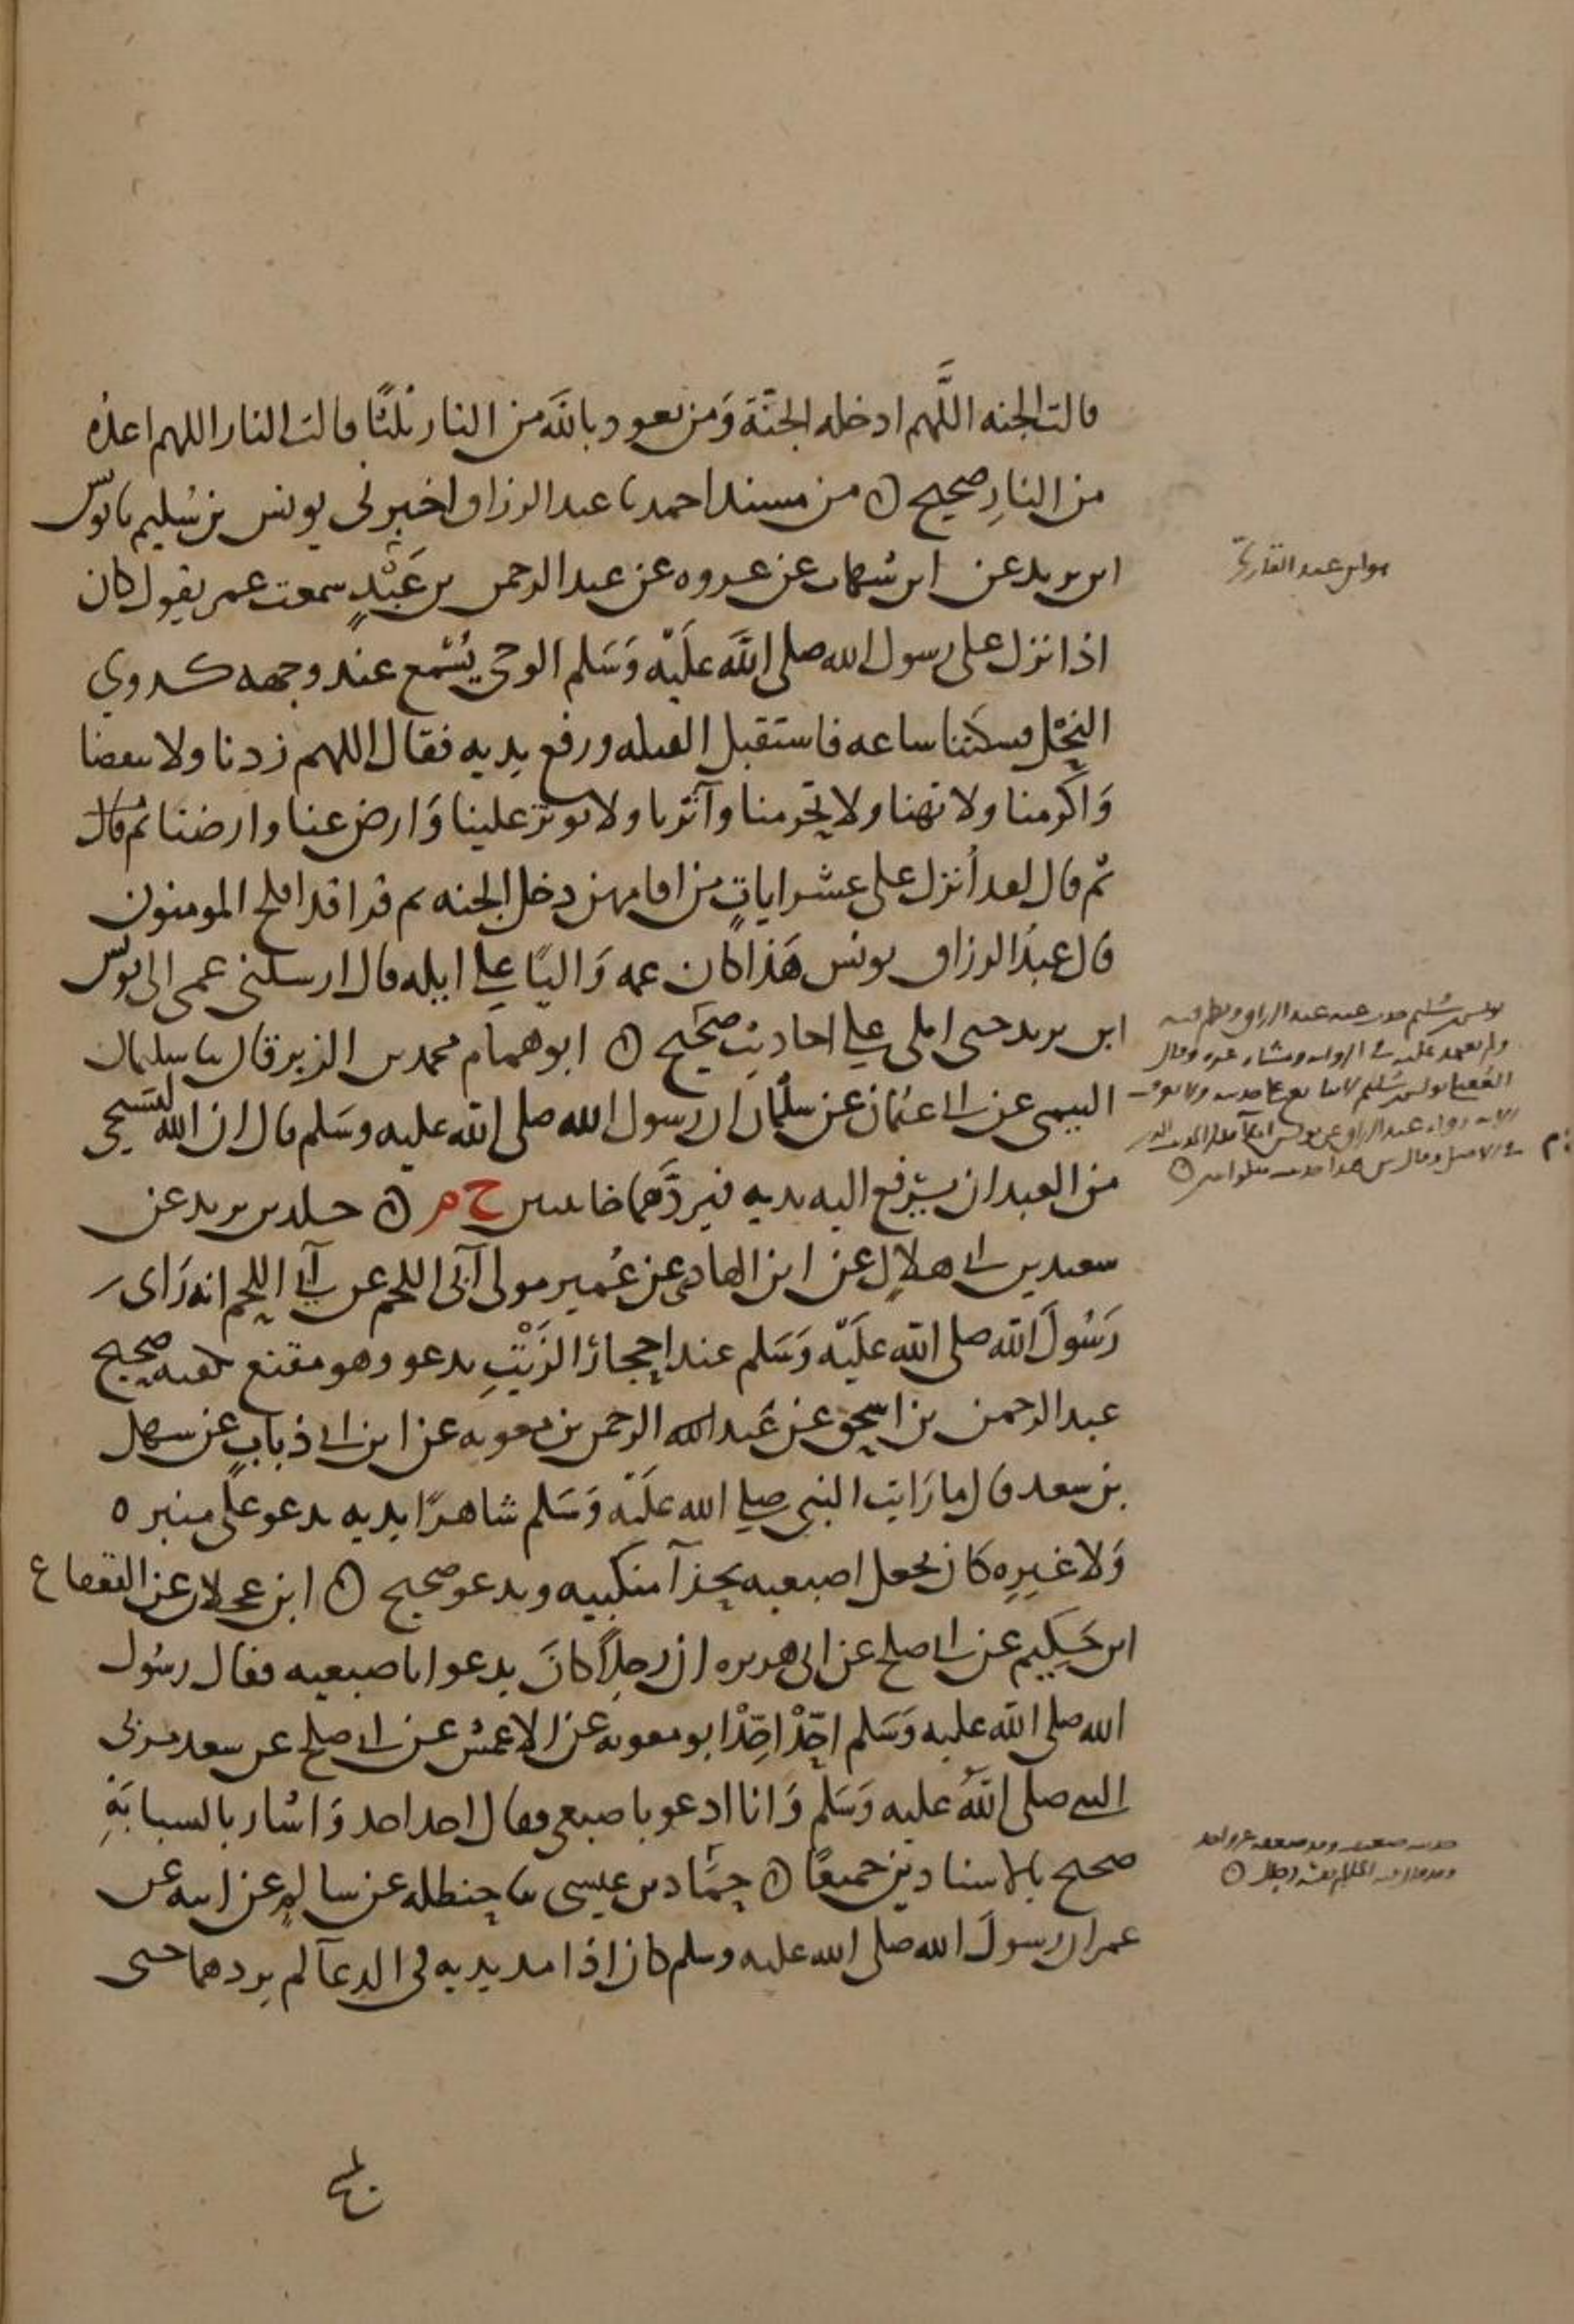 قالت الجنه اللَّهم ادخله الجنَّة وَمن تعوذ بالله من النار ثلثًا قالت النار اللهم اعذه
من النارِ صحيح ۞ من مسند احمد نا عبد الرزاق اخبرنى يونس بن سُليم نا يونس
ابن يزيد عن ابن شهاب عن عروه عن عبد الرحمن بن عَبْدٍ سمعت عمر يقول كان
اذا نزل على رسول الله صلى الله عَلَيْه وَسَلم الوحى يُسْمع عند وجهه كدوي
النحْل فسكتنا ساعه فاستقبل القبله ورفع يديه فقال اللهم زدنا ولا تنقصنا
وَاكرمنا ولا تهنا ولا تحرمنا وآثرنا ولا توثر علينا وَارض عنا وارضنا ثم قال
ثم قال لقد أنزل على عشر اياتٍ من اقامهن دخل الجنه ثم قرا قد افلح المومنون
قال عبدُ الرزاق يونس هَذا كان عمه وَاليًا على ايله قال ارسلنى عمى الى يونس
ابن يزيد حتى املى على احاديث صحيح ۞ ابو همام محمد بن الزبرقان نا سليمان
التيمى عن ابى عثمان عن سلمان ان رسول الله صلى الله عليه وسَلم قال ان الله ليستحيى
من العبد ان يرفع اليه يديه فيردَّهما خائبتين خ م ۞ خلد بن يزيد عن
سعيد بن ابى هلالٍ عن ابن الهادى عن عُمير مولى آبى اللحم عن آبى اللحم انه رَاى
رَسُولَ الله صلى الله عَلَيْه وَسَلم عند احجار الزَيْتِ يدعو وهو مقنع كفيه صحيح
عبد الرحمن بن اسحق عن عَبد الله الرحمن بن معويه عن ابن ابى ذبابٍ عن سهل
بن سعد قال ما رَايت النبى صلى الله عَلَيْه وَسَلم شاهرًا يديه يدعو على منبره
وَلا غيرِه كان يجعل اصبعيه بحذآ منكبيه ويدعو صحيح ۞ ابن عجلان عن القعقاع
ابن حَكيم عن ابى صلح عن ابى هريره ان رجلاً كانَ يدعوا باصبعيه فقال رسُول
الله صلى الله عليه وَسَلم احِّدْ احِّدْ ابو معويه عن الاعمش عن ابى صلح عن سعد مر بى
النبى صلى اللهُ عليه وَسَلم وَانا ادعو باصبعى فقال احد احد وَاشار بالسبابَةِ
صحيح بالاسنادين جميعًا ۞ حمَّاد بن عيسى نا حنطله عن سالم عن ابيه عن
عمر ان رسولَ الله صلى الله عليه وسلم كان اذا مد يديه فى الدعآ لم يردهما حتى
هو ابن عبد القارىّ